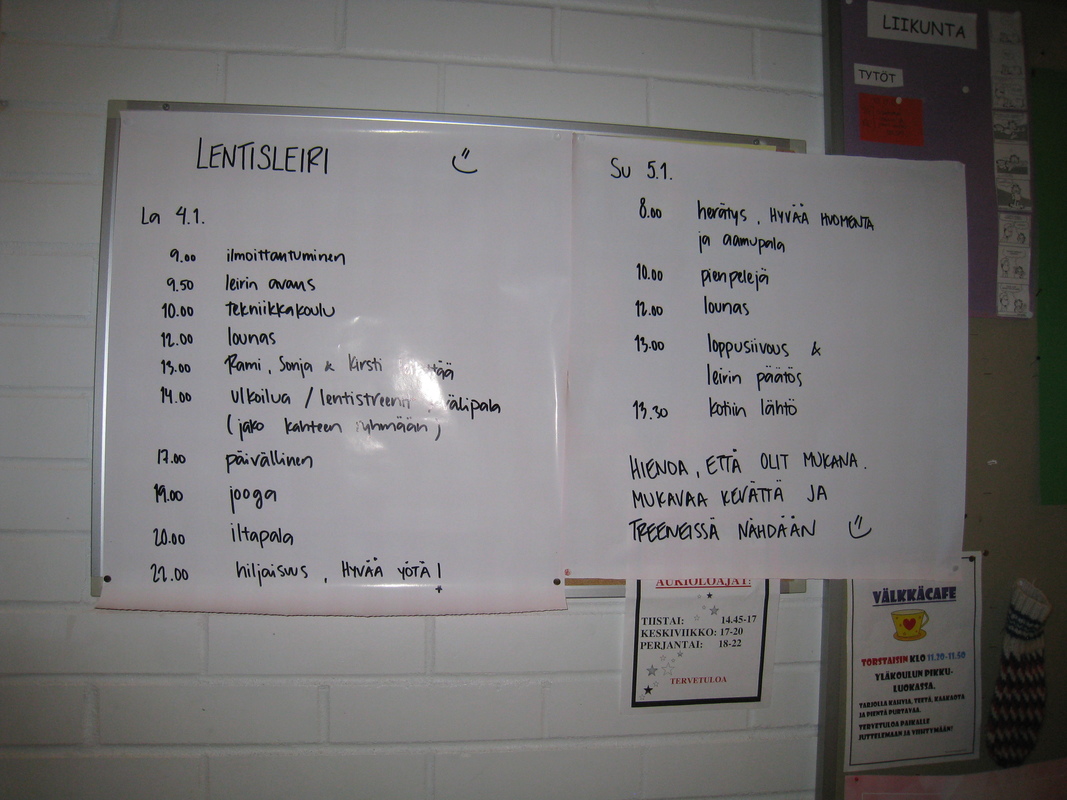 LENTISLEIRI
La 4.1.
9.00 ilmoittautuminen
9.50 leirin avaus
10.00 tekniikkakoulu
12.00 lounas
13.00 Rami, Sonja & Kirsti
14.00 ulkoilua / lentistreenit välipala
(jako kahteen ryhmään)
17.00 päivällinen
19.00 jooga
20.00 iltapala
22.00 hiljaisuus, HYVÄÄ YÖTÄ!
Su 5.1.
8.00 herätys, HYVÄÄ HUOMENTA
ja aamupala
10.00 pienpelejä
12.00 lounas
13.00 loppusiivous &
leirin päätös
13.30 kotiin lähtö
HIENOA, ETTÄ OLIT MUKANA.
MUKAVAA KEVÄTTÄ JA
TREENEISSÄ NÄHDÄÄN
AUKIOLOAJAT:
TIISTAI: 14.45-17
KESKIVIIKKO: 17-20
PERJANTAI: 18-22
TERVETULOA
LIIKUNTA
TYTÖT
VÄLKKÄCAFE
TORSTAISIN KLO 11.20-11.50
YLÄKOULUN PIKKU-
LUOKASSA.
TARJOLLA KAHVIA, TEETÄ, KAAKAOTA
JA PIENTÄ PURTAVAA.
TERVETULOA PAIKALLE
JUTTELEMAAN JA VIIHTYMÄÄN!